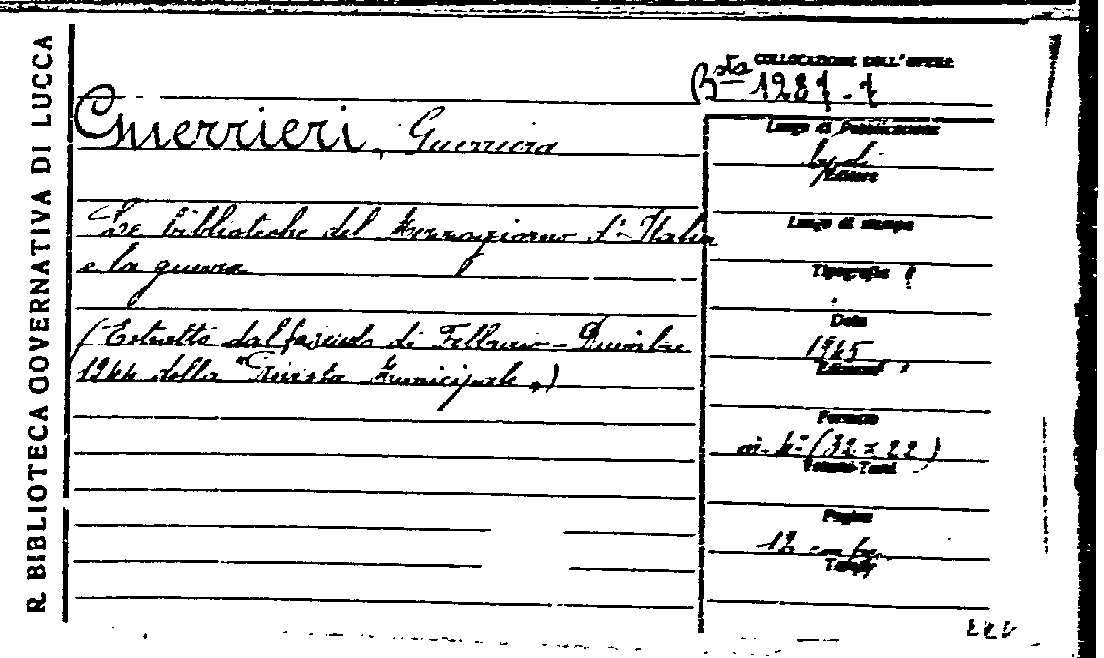 R. BIBLIOTECA GOVERNATIVA DI LUCCA
COLLOCAZIONE DELL'OPERA
Bsta 1287.7
Guerrieri, Guerriera
Le biblioteche del Mezzogiorno d'Italia
e la guerra
(Estratto dal fascicolo di Febbraio - Dicembre
1944 della "Rivista Municipale")
Luogo di Pubblicazione
Editore
Luogo di stampa
Tipografia
Data
1945
Edizione
Formato
in-4° (32 x 22)
Volumi-Tomi
Pagine
12
Tavole